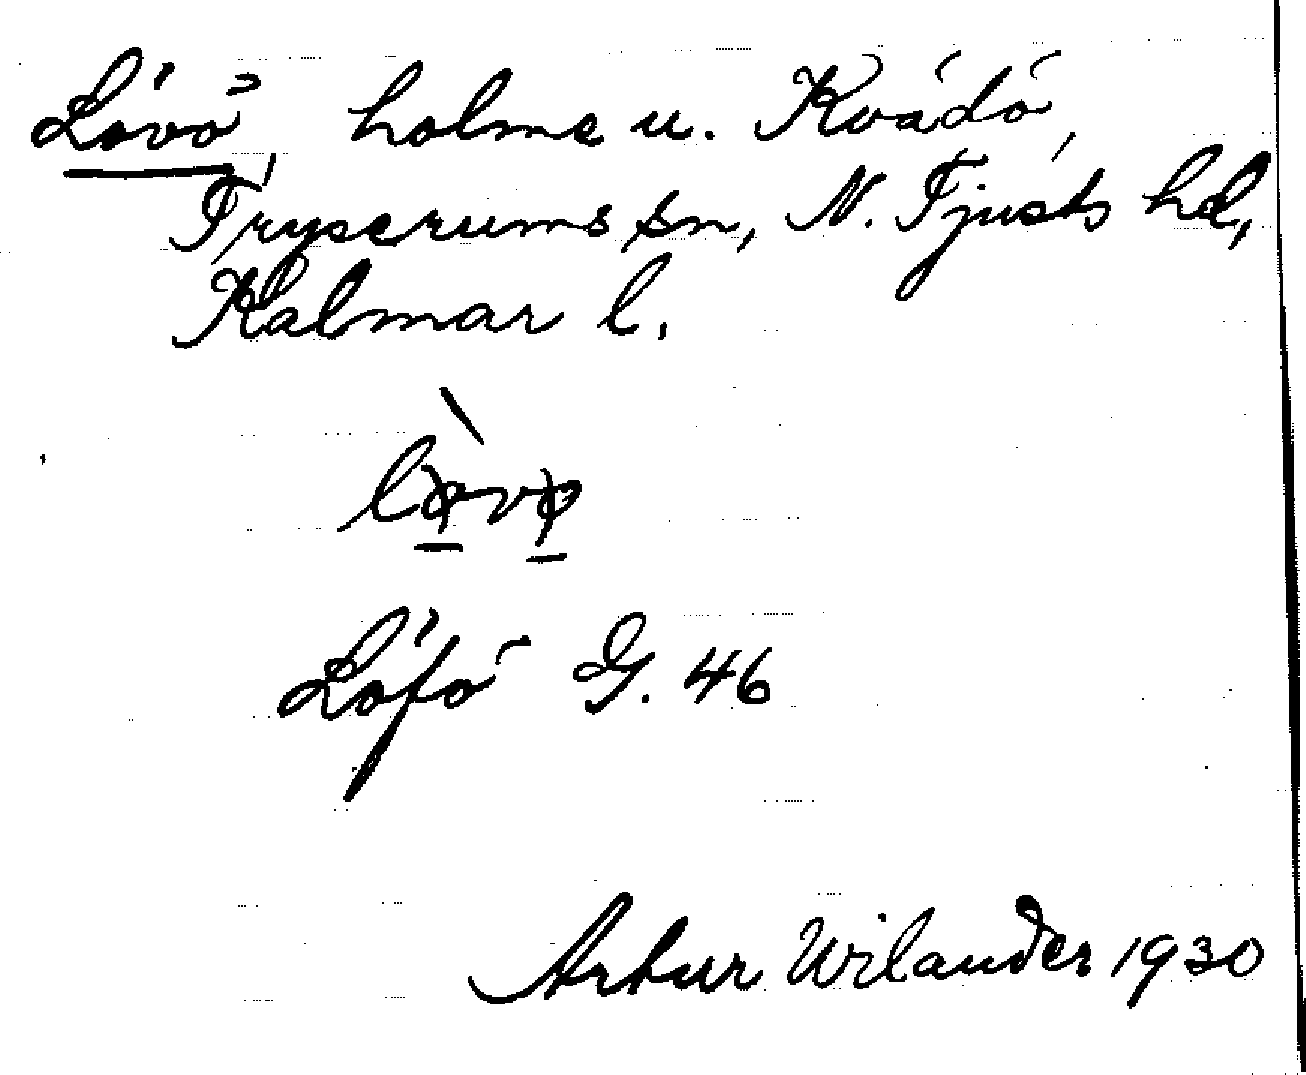 Lövö, holme u. Kvädö,
Tryserums sn, N. Tjusts hd,
Kalmar l.
Löfö G. 46
Artur Wilander 1930